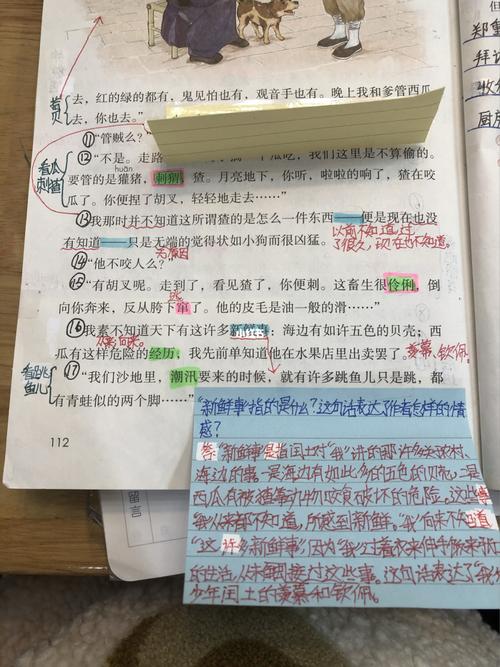 去，红的绿的都有，鬼见怕也有，观音手也有。晚上我和爹管西瓜
去，你也去。”
⑪“管贼么？”
⑫“不是。走路
一个瓜吃，我们这里是不算偷的。
huān
要管的是獾猪，刺猬，猹。月亮地下，你听，啦啦的响了，猹在咬
瓜了。你便捏了胡叉，轻轻地走去……”
看瓜
刺猹
⑬我那时并不知道这所谓猹的是怎么一件东西——便是现在也没
有知道——只是无端的觉得状如小狗而很凶猛。
以前不知道，过
了很久，现在也不知道。
无原因
⑭“他不咬人么？”
⑮“有胡叉呢。走到了，看见猹了，你便刺。这畜生很伶俐，倒
逃
向你奔来，反从胯下窜了。他的皮毛是油一般的滑……”
⑯我素不知道天下有这许多新鲜事：海边有如许五色的贝壳；西
瓜有这样危险的经历，我先前单知道他在水果店里出卖罢了。
羡慕，钦佩。
看跳
鱼儿
⑰“我们沙地里，潮汛要来的时候，就有许多跳鱼儿只是跳，都
有青蛙似的两个脚……”
112
“新鲜事”指的是什么？这句话表达了作者怎样的情
感？
答：“新鲜事”是指闰土对“我”讲的那许多关于农村、
海边的事。一是海边有如此多的五色的贝壳，二是
西瓜有被猹等动物咬食破坏的危险。这些事
“我”从来都不知道，所感到新鲜。“我”向来不知道
“这许多新鲜事”，因为“我”过着衣来伸手饭来张口
的生活，从未接过这些事。这句话表达了“我”
少年闰土的羡慕和钦佩。
留言
小红书
郑重
拜访
厨房